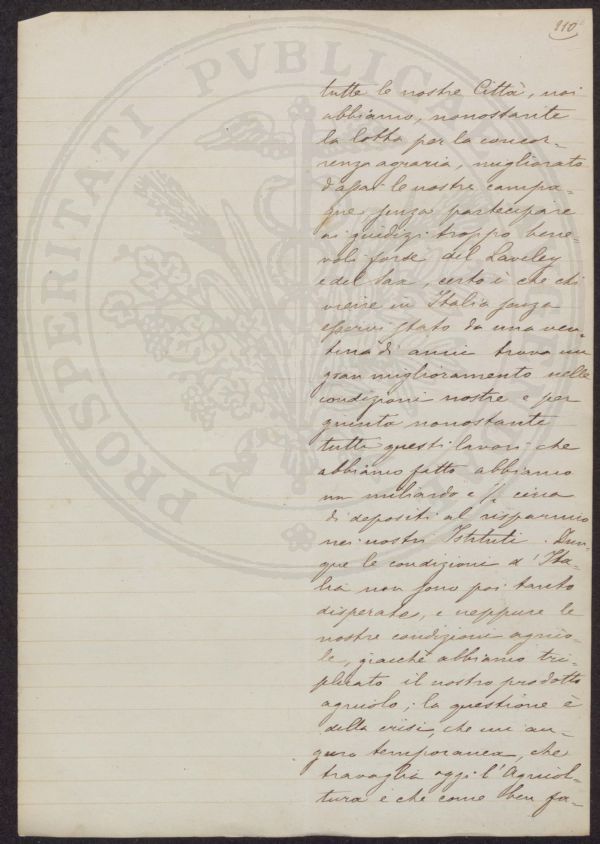 110
PROSPERITATI PUBLICAE AUGENDAE
tutte le nostre Città, noi
abbiamo, nonostante
la lotta per la concor-
renza agraria, migliorato
d'assai le nostre campa-
gne, senza partecipare
ai giudizi troppo bene-
voli forse del Laveley
e del Sax, certo è che chi
viene in Italia senza
esservi stato da una ven-
tina di anni trova un
gran miglioramento nelle
condizioni nostre e per
quanto nonostante
tutti questi lavori che
abbiamo fatto abbiamo
un miliardo e ½ circa
di depositi al risparmio
nei nostri Istituti. Dun-
que le condizioni d'Ita-
lia non sono poi tanto
disperate, e neppure le
nostre condizioni agrico-
le, giacchè abbiamo tri-
plicato il nostro prodotto
agricolo; la questione è
della crisi, che mi au-
guro temporanea, che
travaglia oggi l'Agricol-
tura e che come ben fa-